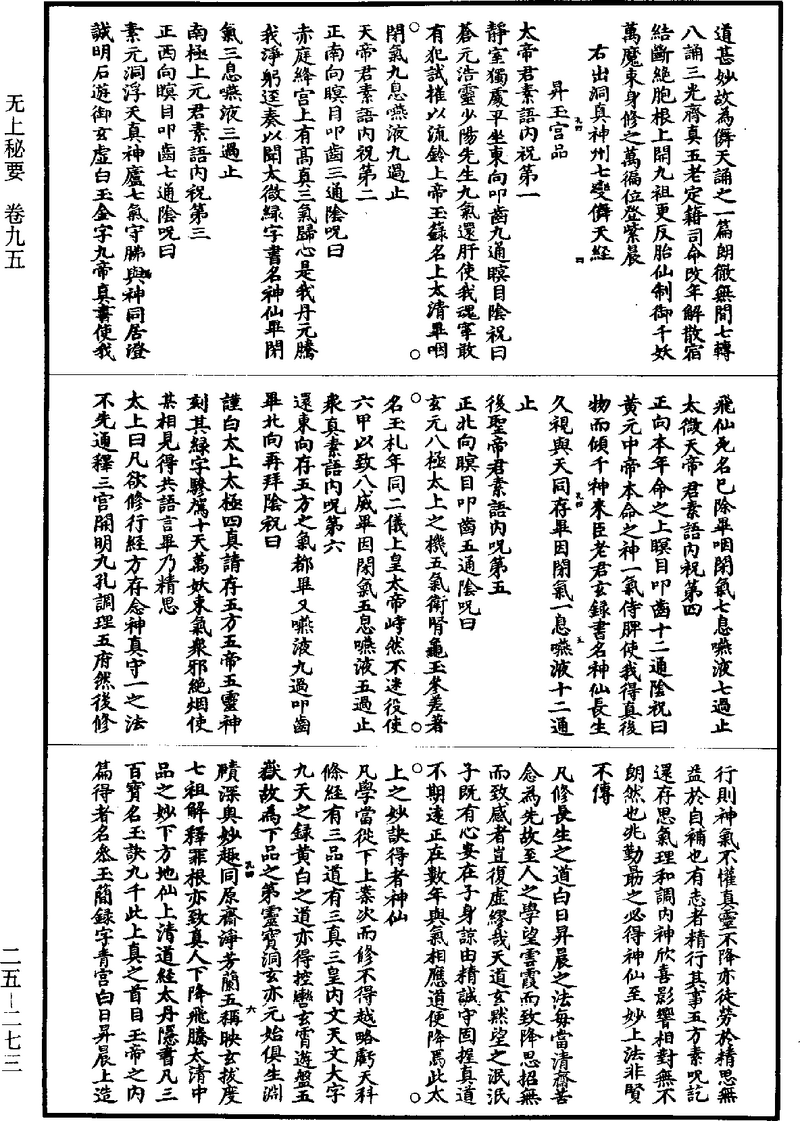 道甚妙故為儛天誦之一篇朗徹無間七轉
八誦三光齊真五老定籍司命改年解散宿
結斷絕胞根上開九祖更反胎仙制御千妖
萬魔束身修之萬徧位登紫晨
右出洞真神州七變儛天經
昇玉宫品
太帝君素語内祝第一
靜室獨處平坐東向叩齒九通瞑目陰祝曰
蒼元浩靈少陽先生九氣還肝使我魂寧敢
有犯試摧以流鈴上帝玉籙名上太清畢咽
閉氣九息嚥液九過止
天帝君素語内祝第二
正南向瞑目叩齒三通陰呪曰
赤庭絳宫上有髙真三氣歸心是我丹元騰
我淨躬逕奏以聞太微緑字書名神仙畢閉
氣三息嚥液三過止
南極上元君素語内祝第三
正西向瞑目叩齒七通陰呪曰
素元洞浮天真神廬七氣守肺與神同居澄
誠明石遊御玄虛白玉金字九帝真書使我
飛仙死名已除畢咽閉氣七息嚥液七過止
太微天帝君素語内祝第四
正向本年命之上瞑目叩齒十二通陰祝曰
黄元中帝本命之神一氣侍脾使我得真後
物而傾千神來臣老君玄錄書名神仙長生
久視與天同存畢因閉氣一息嚥液十二通
止
後聖帝君素語内呪第五
正北向瞑目叩齒五通陰呪曰
玄元八極太上之機五氣衛腎龜玉參差著
名玉札年同二儀上皇太帝峙然不迷役使
六甲以致八威畢因閉氣五息嚥液五過止
衆真素語内呪第六
還東向存五方之氣都畢又嚥液九過叩齒
畢北向再拜陰祝曰
謹白太上太極四真請存五方五帝五靈神
刻其緑字驂駕十天萬妖束氣衆邪絶烟使
某相見得共語言畢乃精思
太上曰凡欲修行經方存念神真守一之法
不先通釋三宫開明九孔調理五府然後修
行則神氣不懽真靈不降亦徒勞於精思無
益於自補也有志者精行其事五方素呪訖
還存思氣理和調内神欣喜影響相對無不
朗然也兆勤勗之必得神仙至妙上法非賢
不傳
凡修長生之道白日昇晨之法每當清齋苦
念為先故至人之學望雲霞而致降思招無
而致感者豈復虛繆哉天道玄黙望之泯泯
子既有心安在子身諒由精誠守固握真道
不期遠正在數年與氣相應道便降焉此太
上之妙訣得者神仙
凡學當從下上案次而修不得越略虧天科
條經有三品道有三真三皇内文天文大字
九天之錄黄白之道亦得控轡玄霄遊盤五
嶽故為下品之第靈寳洞玄亦元始俱生淵
賾深奥妙趣同原齋淨芳蘭五稱映玄拔度
七祖解釋罪根亦致真人下降飛騰太清中
品之妙下方地仙上清道經太丹隱書凡三
百寳名玉訣九千此上真之首目玉帝之内
篇得者名叅玉簡錄字青宫白日昇晨上造
无上秘要　卷九五
二五－二七三